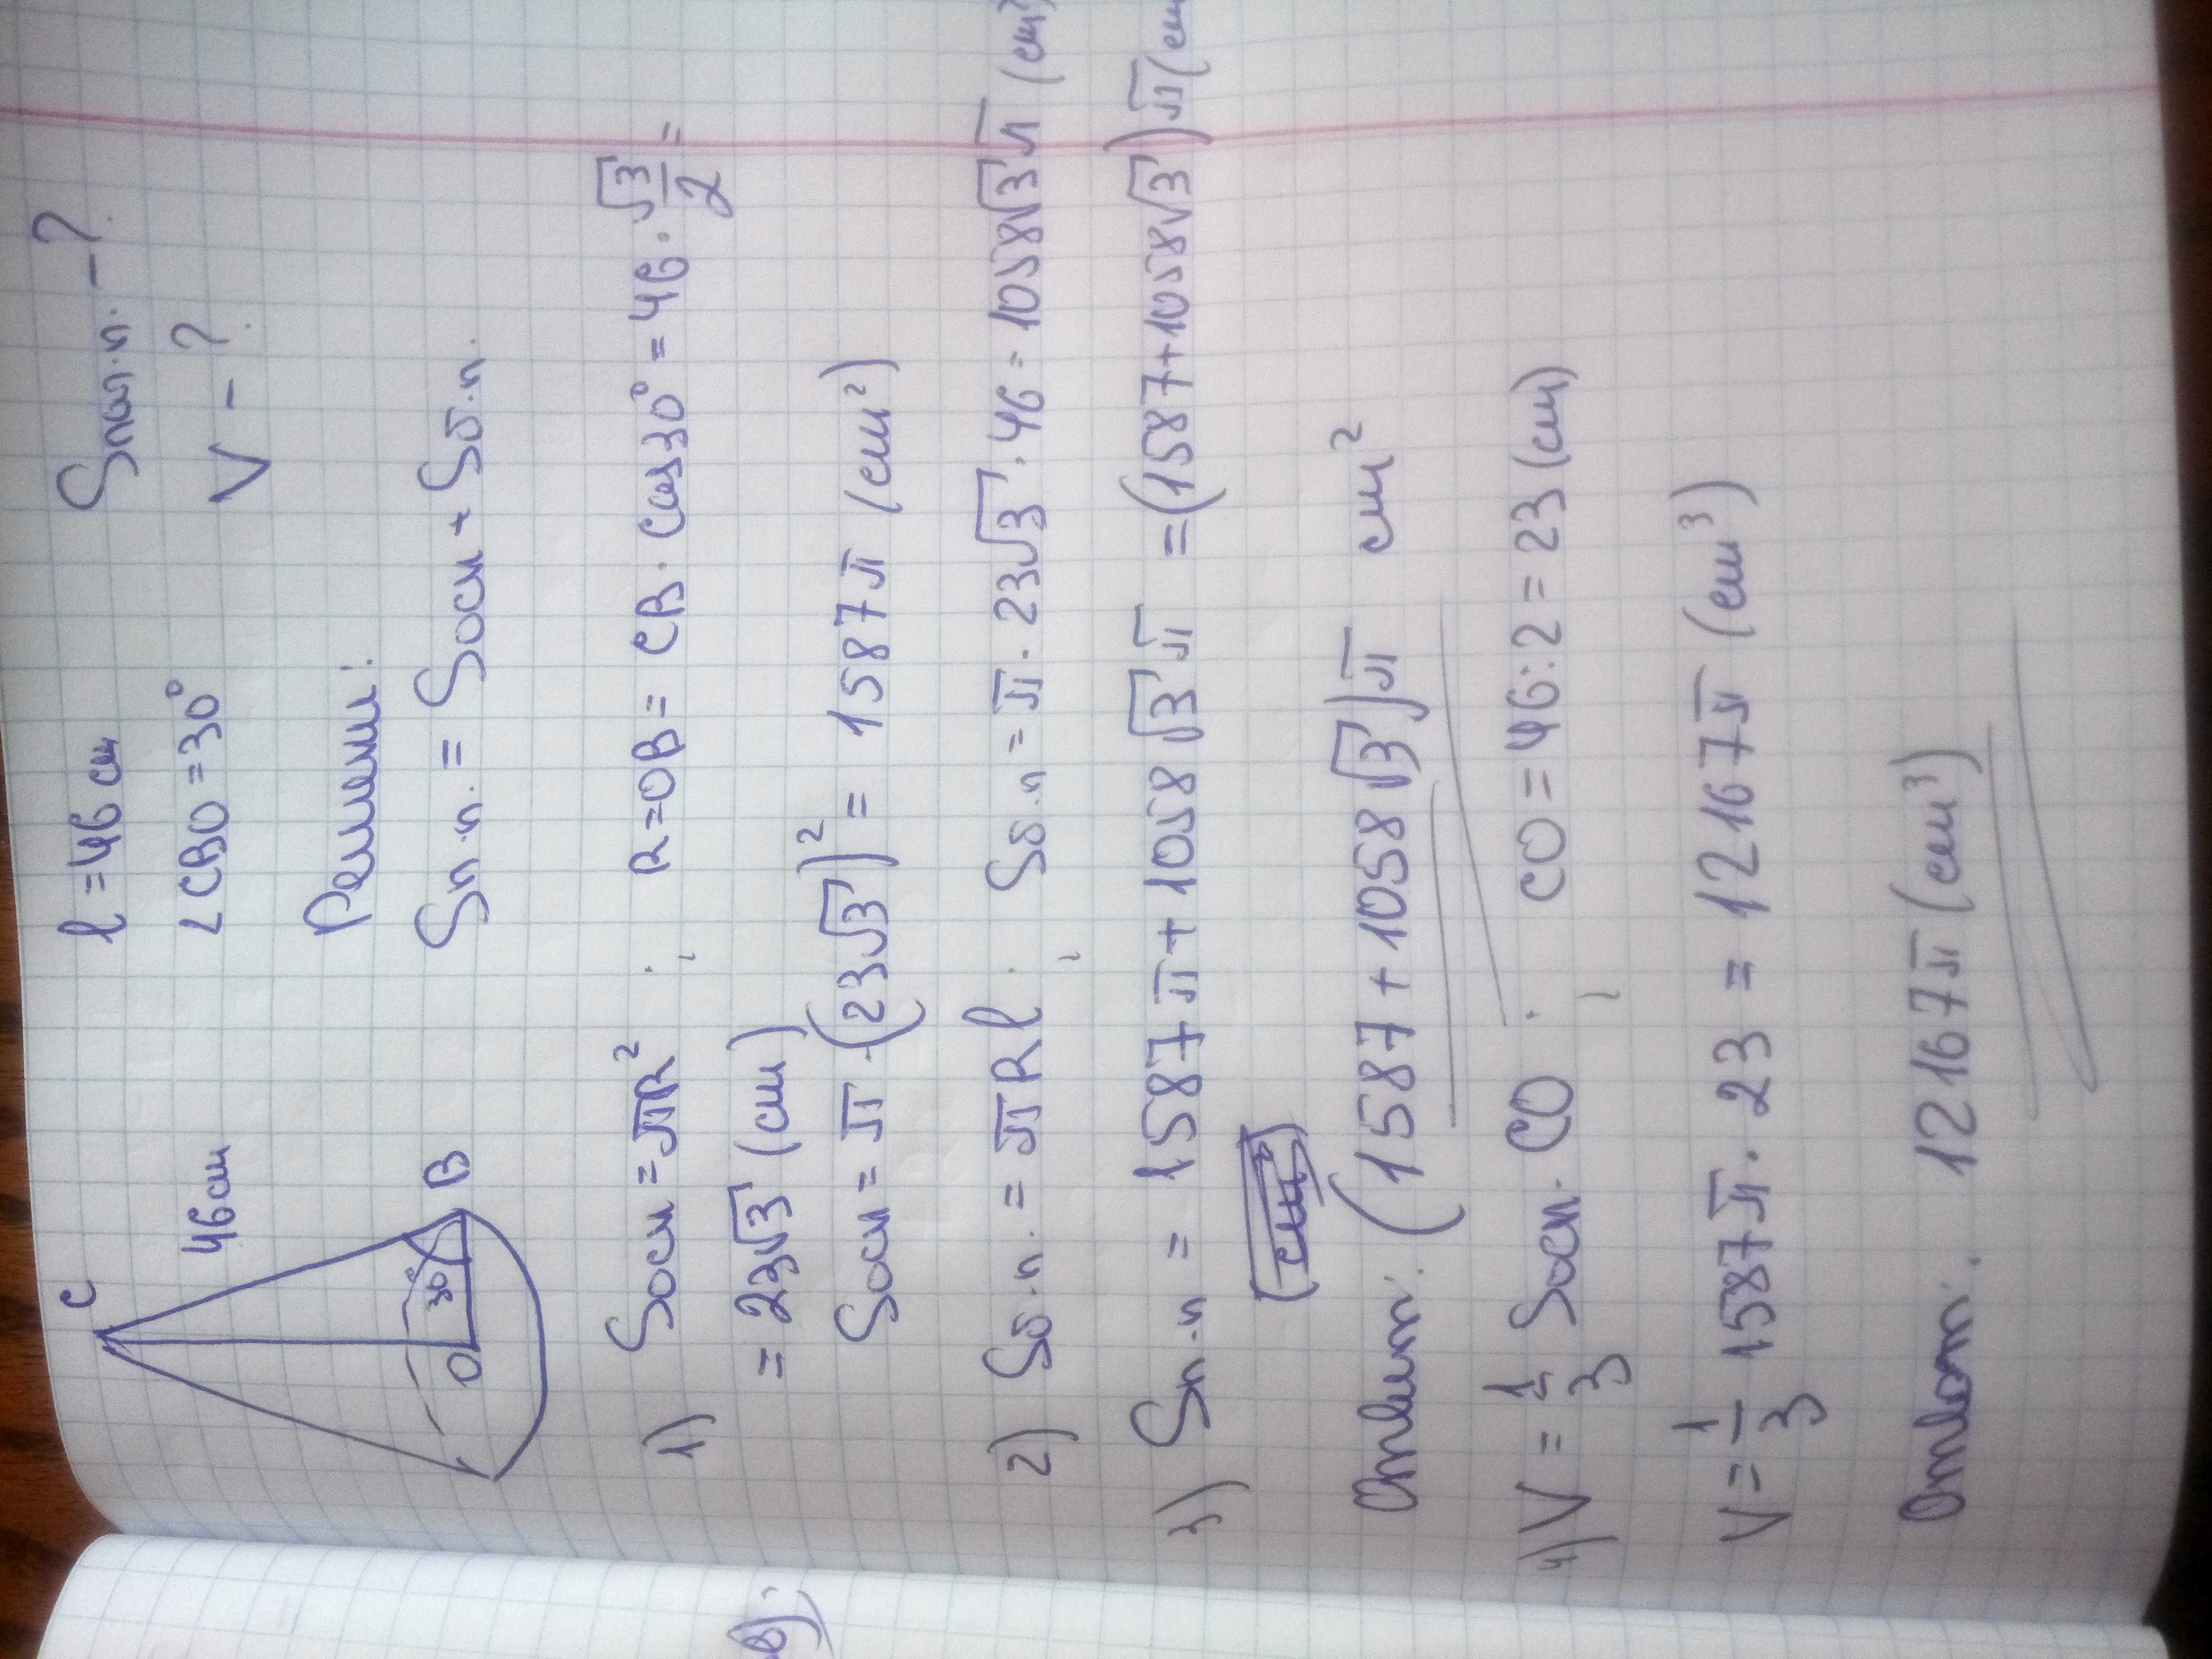 C
46 см
30°
O
B
l = 46 см
Sпол.п. – ?
∠CBO = 30°
V – ?
Решени:
Sп.п. = Sосн + Sб.п.
1) Sосн = πR² ; R = OB = CB · cos30° = 46 · √3/2 =
= 23√3 (см)
Sосн = π · (23√3)² = 1587π (см²)
2) Sб.п. = πRl ; Sб.п = π · 23√3 · 46 = 1058√3π (см²)
3) Sп.п = 1587π + 1058√3π = (1587+1058√3)π (см
Ответ: (1587+1058√3)π см²
4) V = 1/3 Sосн · CO ; CO = 46:2 = 23 (см)
V = 1/3 · 1587π · 23 = 12167π (см³)
Ответ: 12167π (см³)
в),